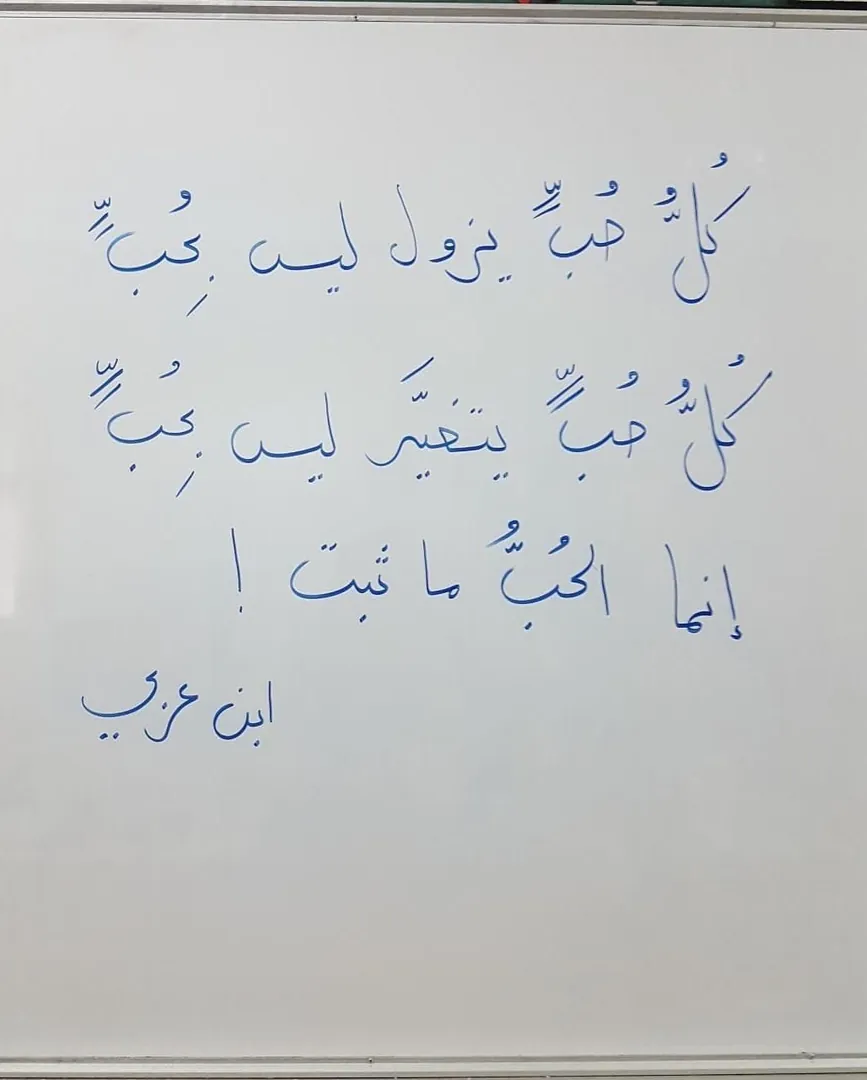 كُلُّ حُبٍّ يزول ليس بِحُبٍّ
كُلُّ حُبٍّ يتغيَّر ليس بِحُبٍّ
إنما الحُبُّ ما ثبت !
ابن عربي